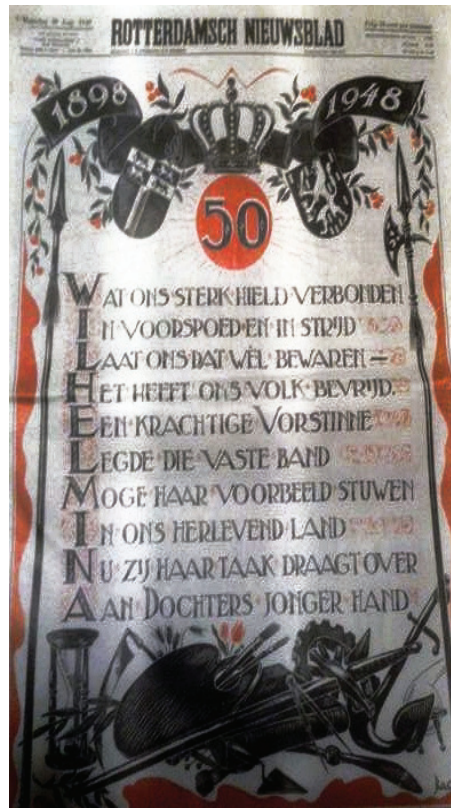 ROTTERDAMSCH NIEUWSBLAD
1898
1948
50
WAT ONS STERK HIELD VERBONDEN
IN VOORSPOED EN IN STRIJD
LAAT ONS DAT WÈL BEWAREN —
HET HEEFT ONS VOLK BEVRIJD.
EEN KRACHTIGE VORSTINNE
LEGDE DIE VASTE BAND
MOGE HAAR VOORBEELD STUWEN
IN ONS HERLEVEND LAND
NU ZIJ HAAR TAAK DRAAGT OVER
AAN DOCHTERS JONGER HAND